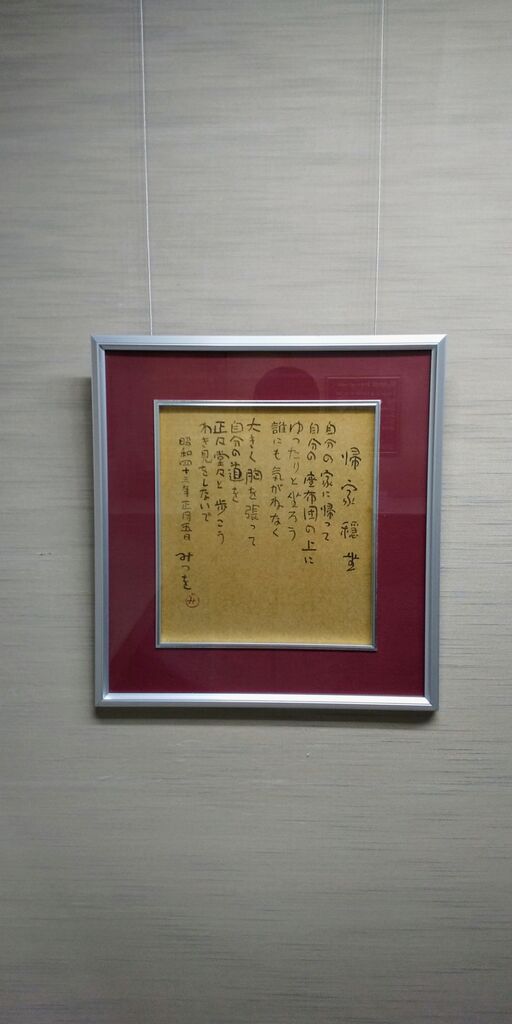 帰家穏坐
自分の家に帰って
自分の座布団の上に
ゆったりと坐ろう
誰にも気がねなく
大きく胸を張って
自分の道を
正々堂々と歩こう
わき見をしないで
昭和四十三年正月五日 みつを